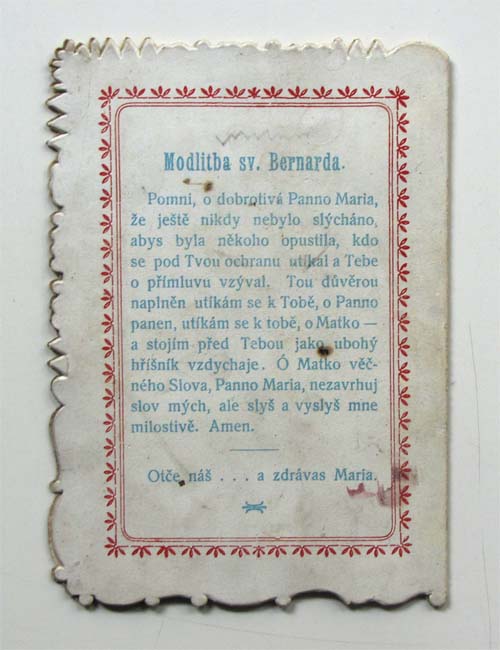 Modlitba sv. Bernarda.
Pomni, o dobrotivá Panno Maria,
že ještě nikdy nebylo slýcháno,
abys byla někoho opustila, kdo
se pod Tvou ochranu utíkal a Tebe
o přímluvu vzýval. Tou důvěrou
naplněn utíkám se k Tobě, o Panno
panen, utíkám se k tobě, o Matko —
a stojím před Tebou jako ubohý
hříšník vzdychaje. Ó Matko věč-
ného Slova, Panno Maria, nezavrhuj
slov mých, ale slyš a vyslyš mne
milostivě. Amen.
Otče náš . . . a zdrávas Maria.